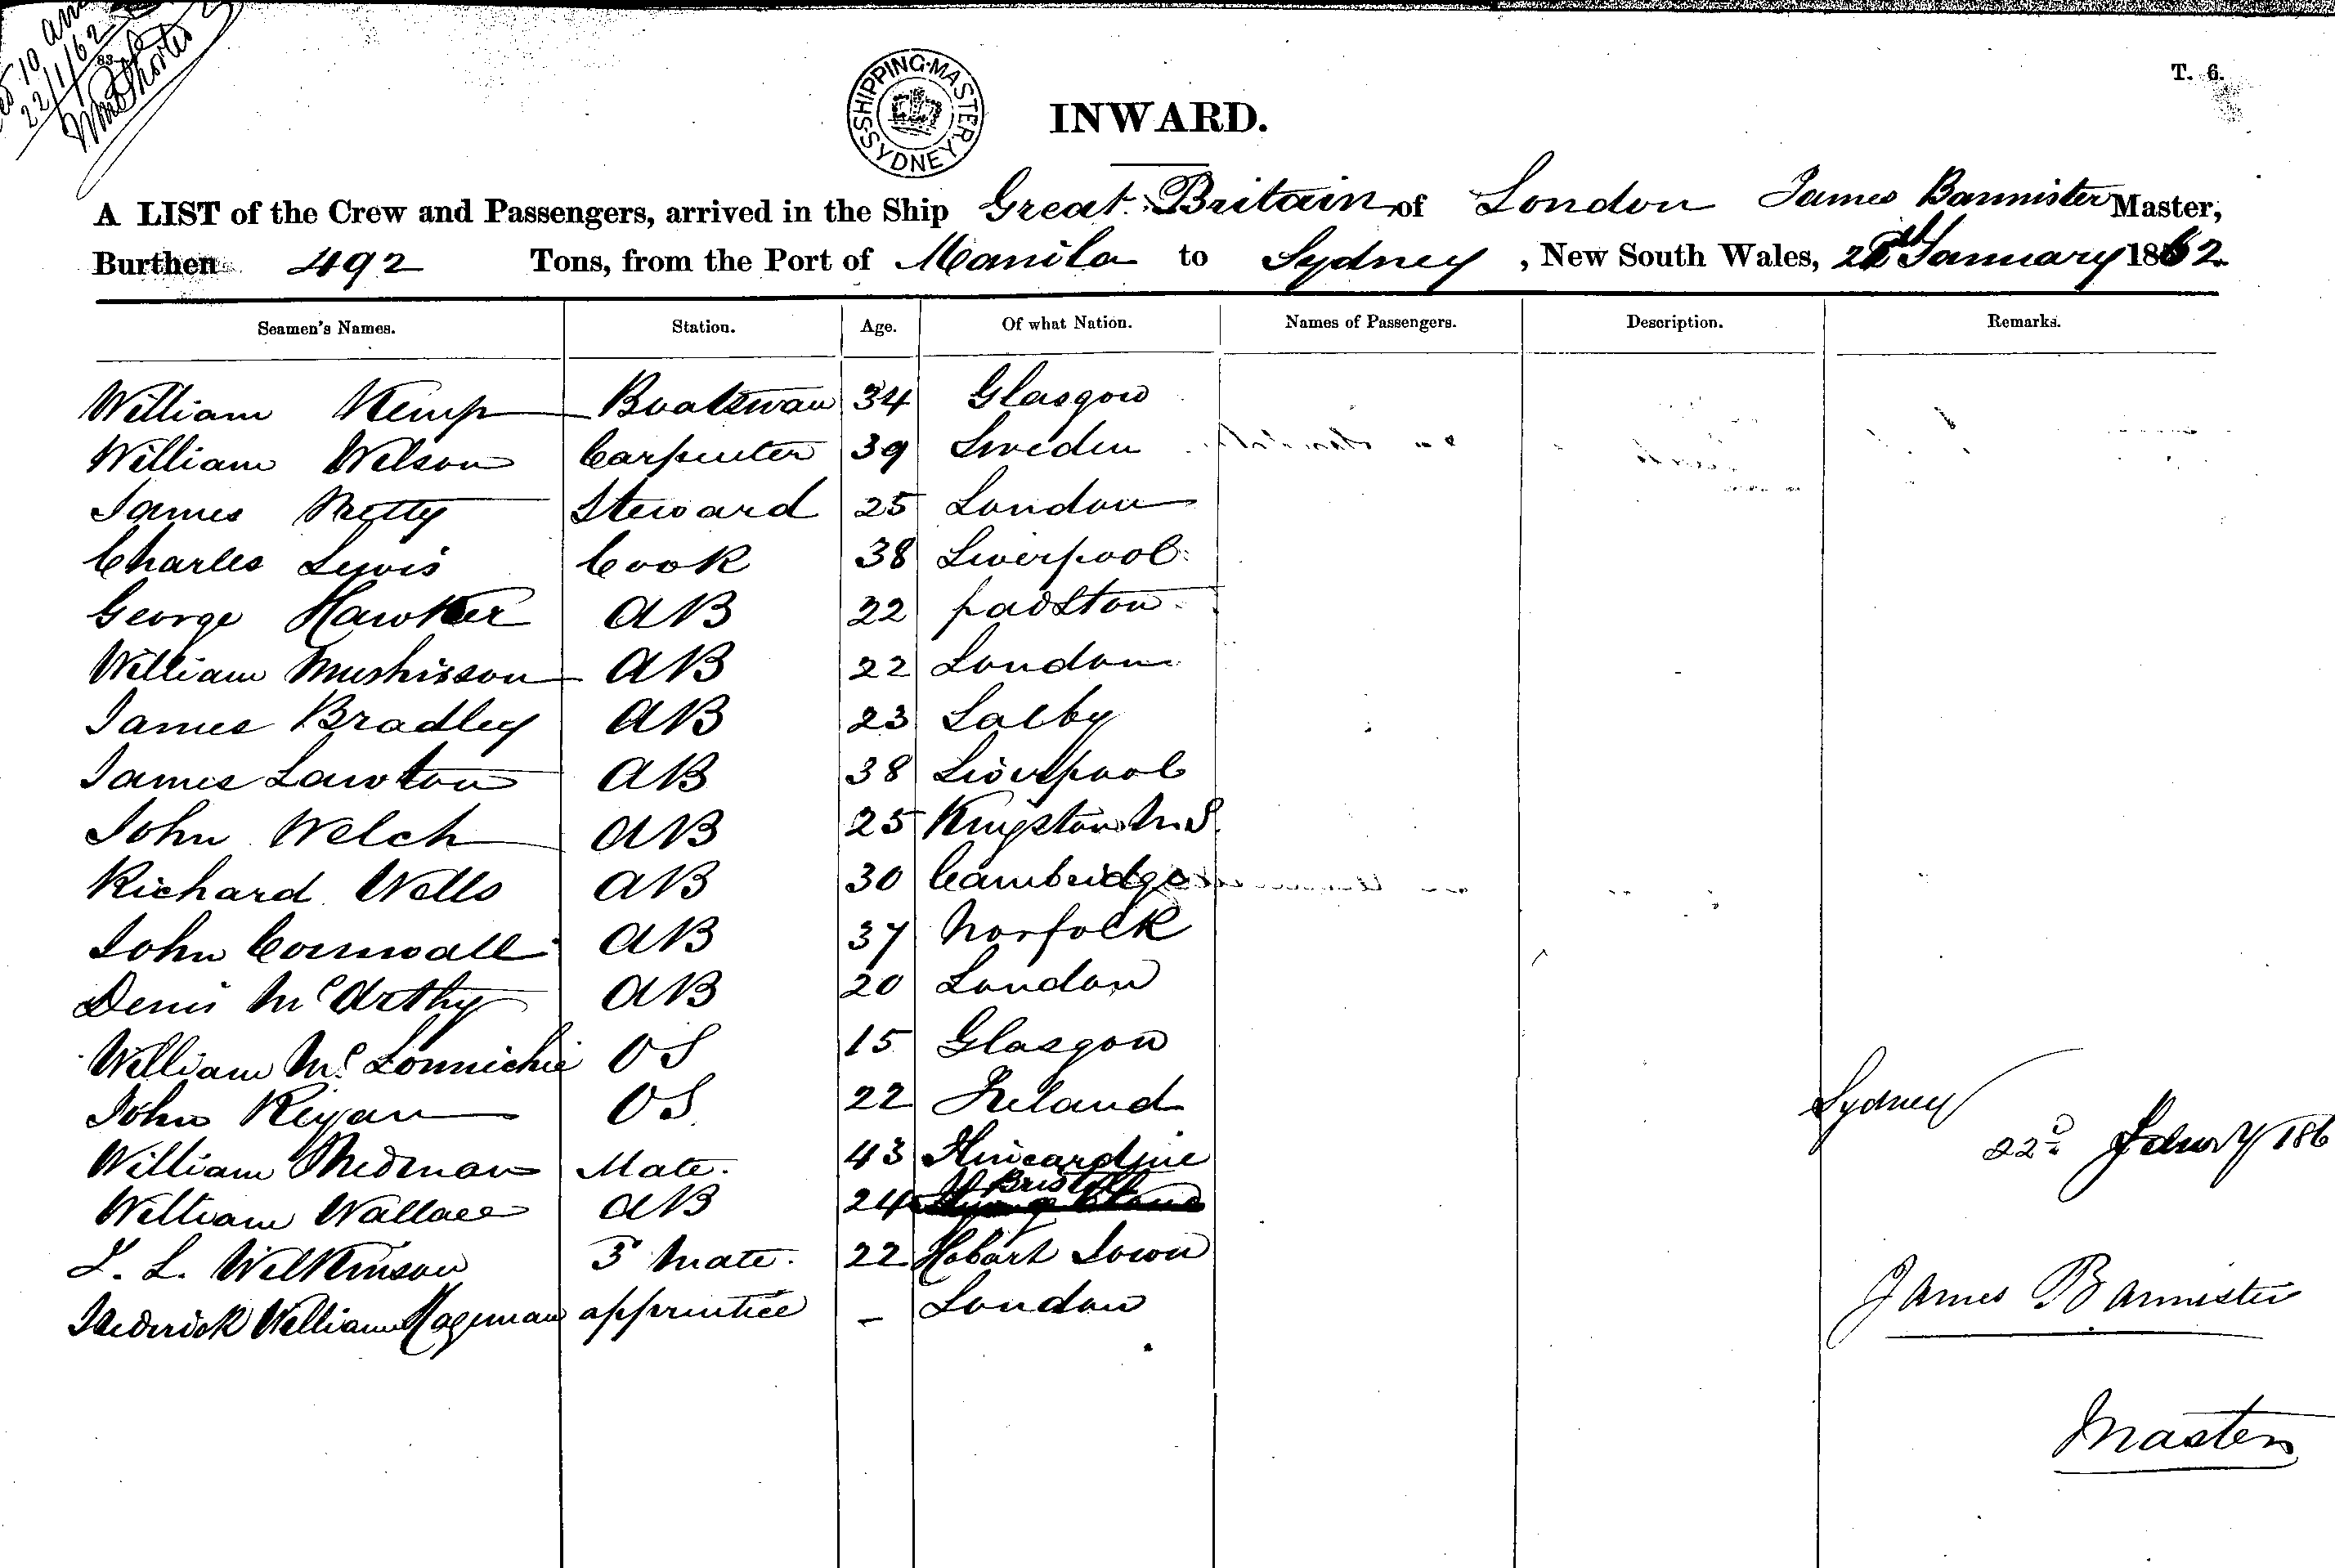 10 am
22/1/62
83
T. 6.
SHIPPING·MASTER SYDNEY
INWARD.
A LIST of the Crew and Passengers, arrived in the Ship Great Britain of London James Bannister Master,
Burthen 492 Tons, from the Port of Manila to Sydney, New South Wales, January 1862
Seamen's Names. Station. Age. Of what Nation. Names of Passengers. Description. Remarks.
William Kemp Boatswan 34 Glasgow
William Wilson Carpenter 39 Sweden
James Steward 25 London
Charles Lewis Cook 38 Liverpool
George Hawker AB 22 padston
William AB 22 London
James Bradley AB 23 Salby
James Lawton AB 38 Liverpool
John Welch AB 25 Kingston
Richard Wells AB 30 Cambridge
John Cornwall AB 37 Norfolk
Denis McArthy AB 20 London
William Mc OS 15 Glasgow
John OS 22 Ireland
William Mate. 43 Kincardine
William Wallace AB 24 Bristol
L. Wilkinson 3 Mate. 22 Hobart Town
Frederick William Hageman apprentice – London
Sydney
22d 186
James Bannister
Master